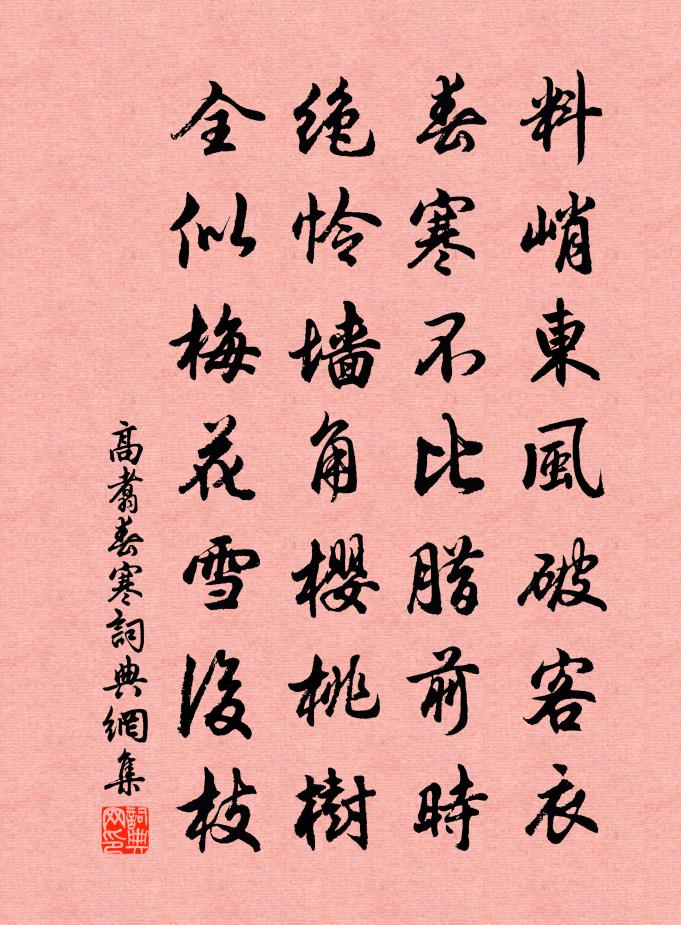 料峭東風破客衣
春寒不比腊前時
绝怜墙角櫻桃樹
全似梅花雪後枝
高翥春寒詞典網集
詞典网印